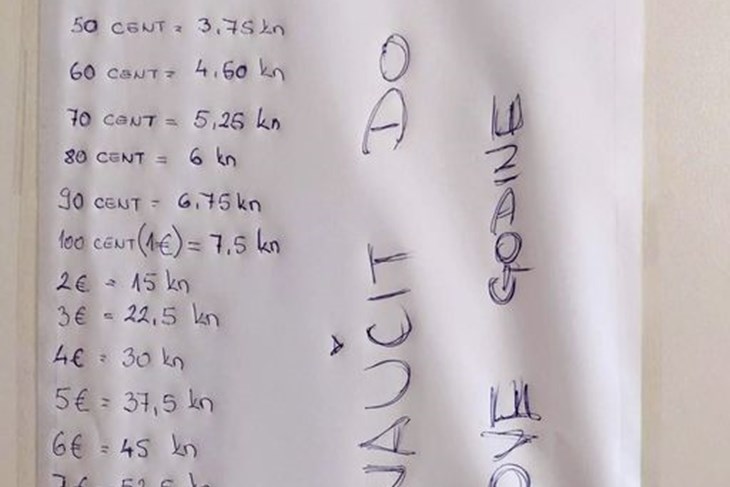 50 CENT = 3,75 kn
60 CENT = 4,50 kn
70 CENT = 5,25 kn
80 CENT = 6 kn
90 CENT = 6,75 kn
100 CENT (1€) = 7,5 kn
2€ = 15 kn
3€ = 22,5 kn
4€ = 30 kn
5€ = 37,5 kn
6€ = 45 kn
7€ = 52,5 kn
NAUČIT DO
OVE GODINE